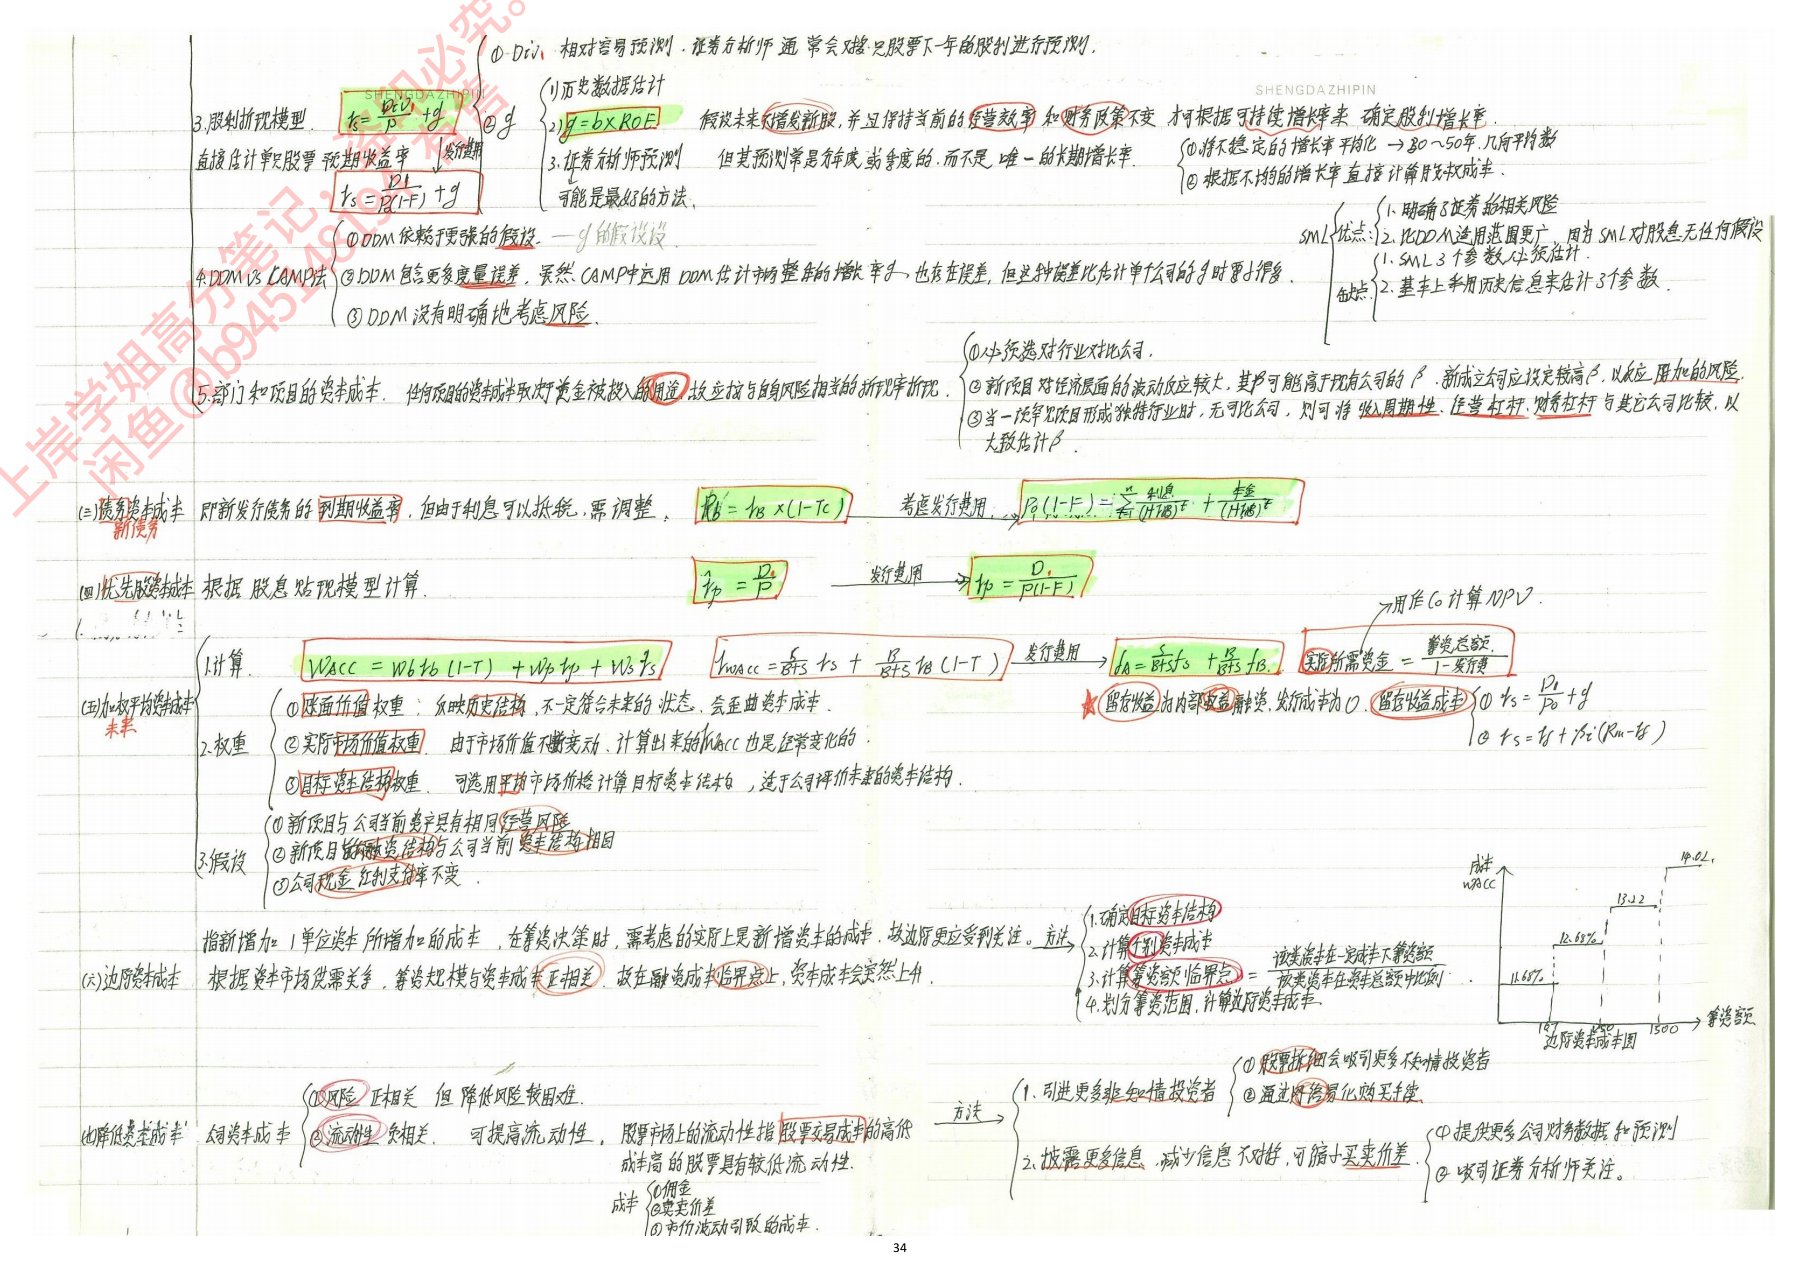 上岸学姐高分笔记，盗卖必究。
闲鱼@b94514819
SHENGDAZHIPIN
SHENGDAZHIPIN
3.股利折现模型. rs=Div₁/P+g
直接估计单只股票预期收益率 ↓发行费用
rs=D1/P(1-F)+g
① Div₁ 相对容易预测. 证券分析师通常会对接只股票下一年的股利进行预测.
② g
1)历史数据估计
2) g=b×ROE 假设未来不增发新股,并且保持当前的经营效率和财务政策不变 才可根据可持续增长率来确定股利增长率.
3.证券分析师预测 但其预测常是分年度或季度的.而不是唯一的长期增长率.
可能是最好的方法.
①将不稳定的增长率平均化→30~50年.几何平均数
②根据不均的增长率直接计算股权成本.
4.DDM vs CAMP法
①DDM依赖于更强的假设. —g的假设
②DDM包含更多度量误差, 虽然CAMP中运用DDM估计市场整体的增长率g,也存在误差,但这种误差比估计单个公司的g时要小得多.
③DDM没有明确地考虑风险.
SML
优点:
1.明确了证券的相关风险
2.比DDM适用范围更广 因为SML对股息无任何假设
缺点:
1.SML 3个参数必须估计.
2.基本上采用历史信息来估计3个参数.
5.部门和项目的资本成本. 任何项目的资本成本取决于资金被投入的用途,故应按与自身风险相当的折现率折现.
①必须选对行业对比公司.
②新项目对经济层面的波动反应较大,其β可能高于现有公司的β.新成立公司应设定较高β,以反应附加的风险.
③当一项单项目形成独特行业时,无可比公司,则可将收入周期性.经营杠杆.财务杠杆与其它公司比较,以
大致估计β.
(三)债务资本成本 即新发行债务的到期收益率,但由于利息可以抵税,需调整. RB'=rB×(1-Tc) 考虑发行费用. P0(1-F)=Σ利息/(1+RB)^t+本金/(1+RB)^t
新债务
(四)优先股资本成本 根据股息贴现模型计算. rp=D₁/P 发行费用 rp=D₁/P(1-F)
(五)加权平均资本成本
未来
1.计算 WACC=Wb rb(1-T)+Wp rp+Ws rs rWACC=S/B+S rs+B/B+S rB(1-T) 发行费用 fA=S/B+S fs+B/B+S fB. 实际所需资金=筹资总额/1-发行费
用作C0计算NPV.
2.权重
①账面价值权重: 反映历史结构,不一定符合未来的状态,会歪曲资本成本.
②实际市场价值权重. 由于市场价值不断变动.计算出来的WACC也是经常变化的.
③目标资本结构权重. 可选用平均市场价格计算目标资本结构,适于公司评价未来的资本结构.
★留存收益为内部收益融资,发行成本为0. 留存收益成本
① rs=D1/P0+g
② rs=rf+βi(Rm-rf)
3.假设
①新项目与公司当前资产具有相同经营风险
②新项目的融资结构与公司当前资本结构相同
③公司现金红利支付率不变.
(六)边际资本成本
指新增加1单位资本所增加的成本,在筹资决策时,需考虑的实际上是新增资本的成本.故边际更应受到关注。方法→
根据资本市场供需关系,筹资规模与资本成本正相关.故在融资成本临界点上,资本成本会突然上升.
1.确定目标资本结构
2.计算个别资本成本
3.计算筹资额临界点=该类资本在一定成本下筹资额/该类资本在资本总额中比例.
4.划分筹资范围,计算边际资本成本.
成本
WACC
11.68%
12.68%
13.22
14.02.
1500
筹资额
边际资本成本图
(七)降低资本成本 公司资本成本
①风险 正相关 但降低风险较困难.
②流动性 负相关. 可提高流动性。股票市场上的流动性指股票交易成本的高低
成本高的股票具有较低流动性.
成本
①佣金
②买卖价差
③市价波动引致的成本.
方法
1.引进更多非知情投资者
①股票拆细会吸引更多不知情投资者
②通过网络易化购买手续
2.披露更多信息.减少信息不对称,可缩小买卖价差.
①提供更多公司财务数据和预测
②吸引证券分析师关注。
34